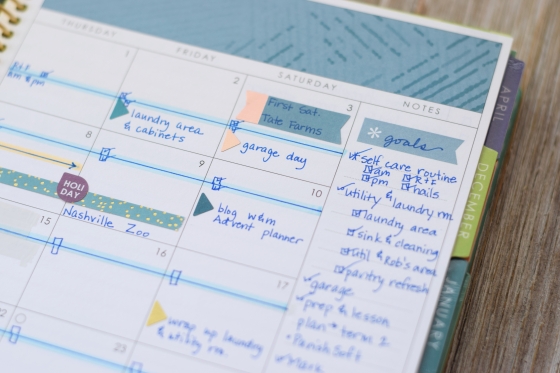 THURSDAY
FRIDAY
SATURDAY
NOTES
1
2
3
First Sat.
Tate Farms
laundry area
& cabinets
garage day
8
9
10
HOLI
DAY
Nashville Zoo
blog w&m
Advent planner
15
16
17
wrap up laundry
& utility rm.
22
23
* goals
self care routine
am
pm
nails
utility & laundry rm
laundry area
sink & cleaning
util & Rob's area
pantry refresh
garage
prep & lesson
plan * term 2
• Parish Soft
APRIL
DECEMBER
JANUARY